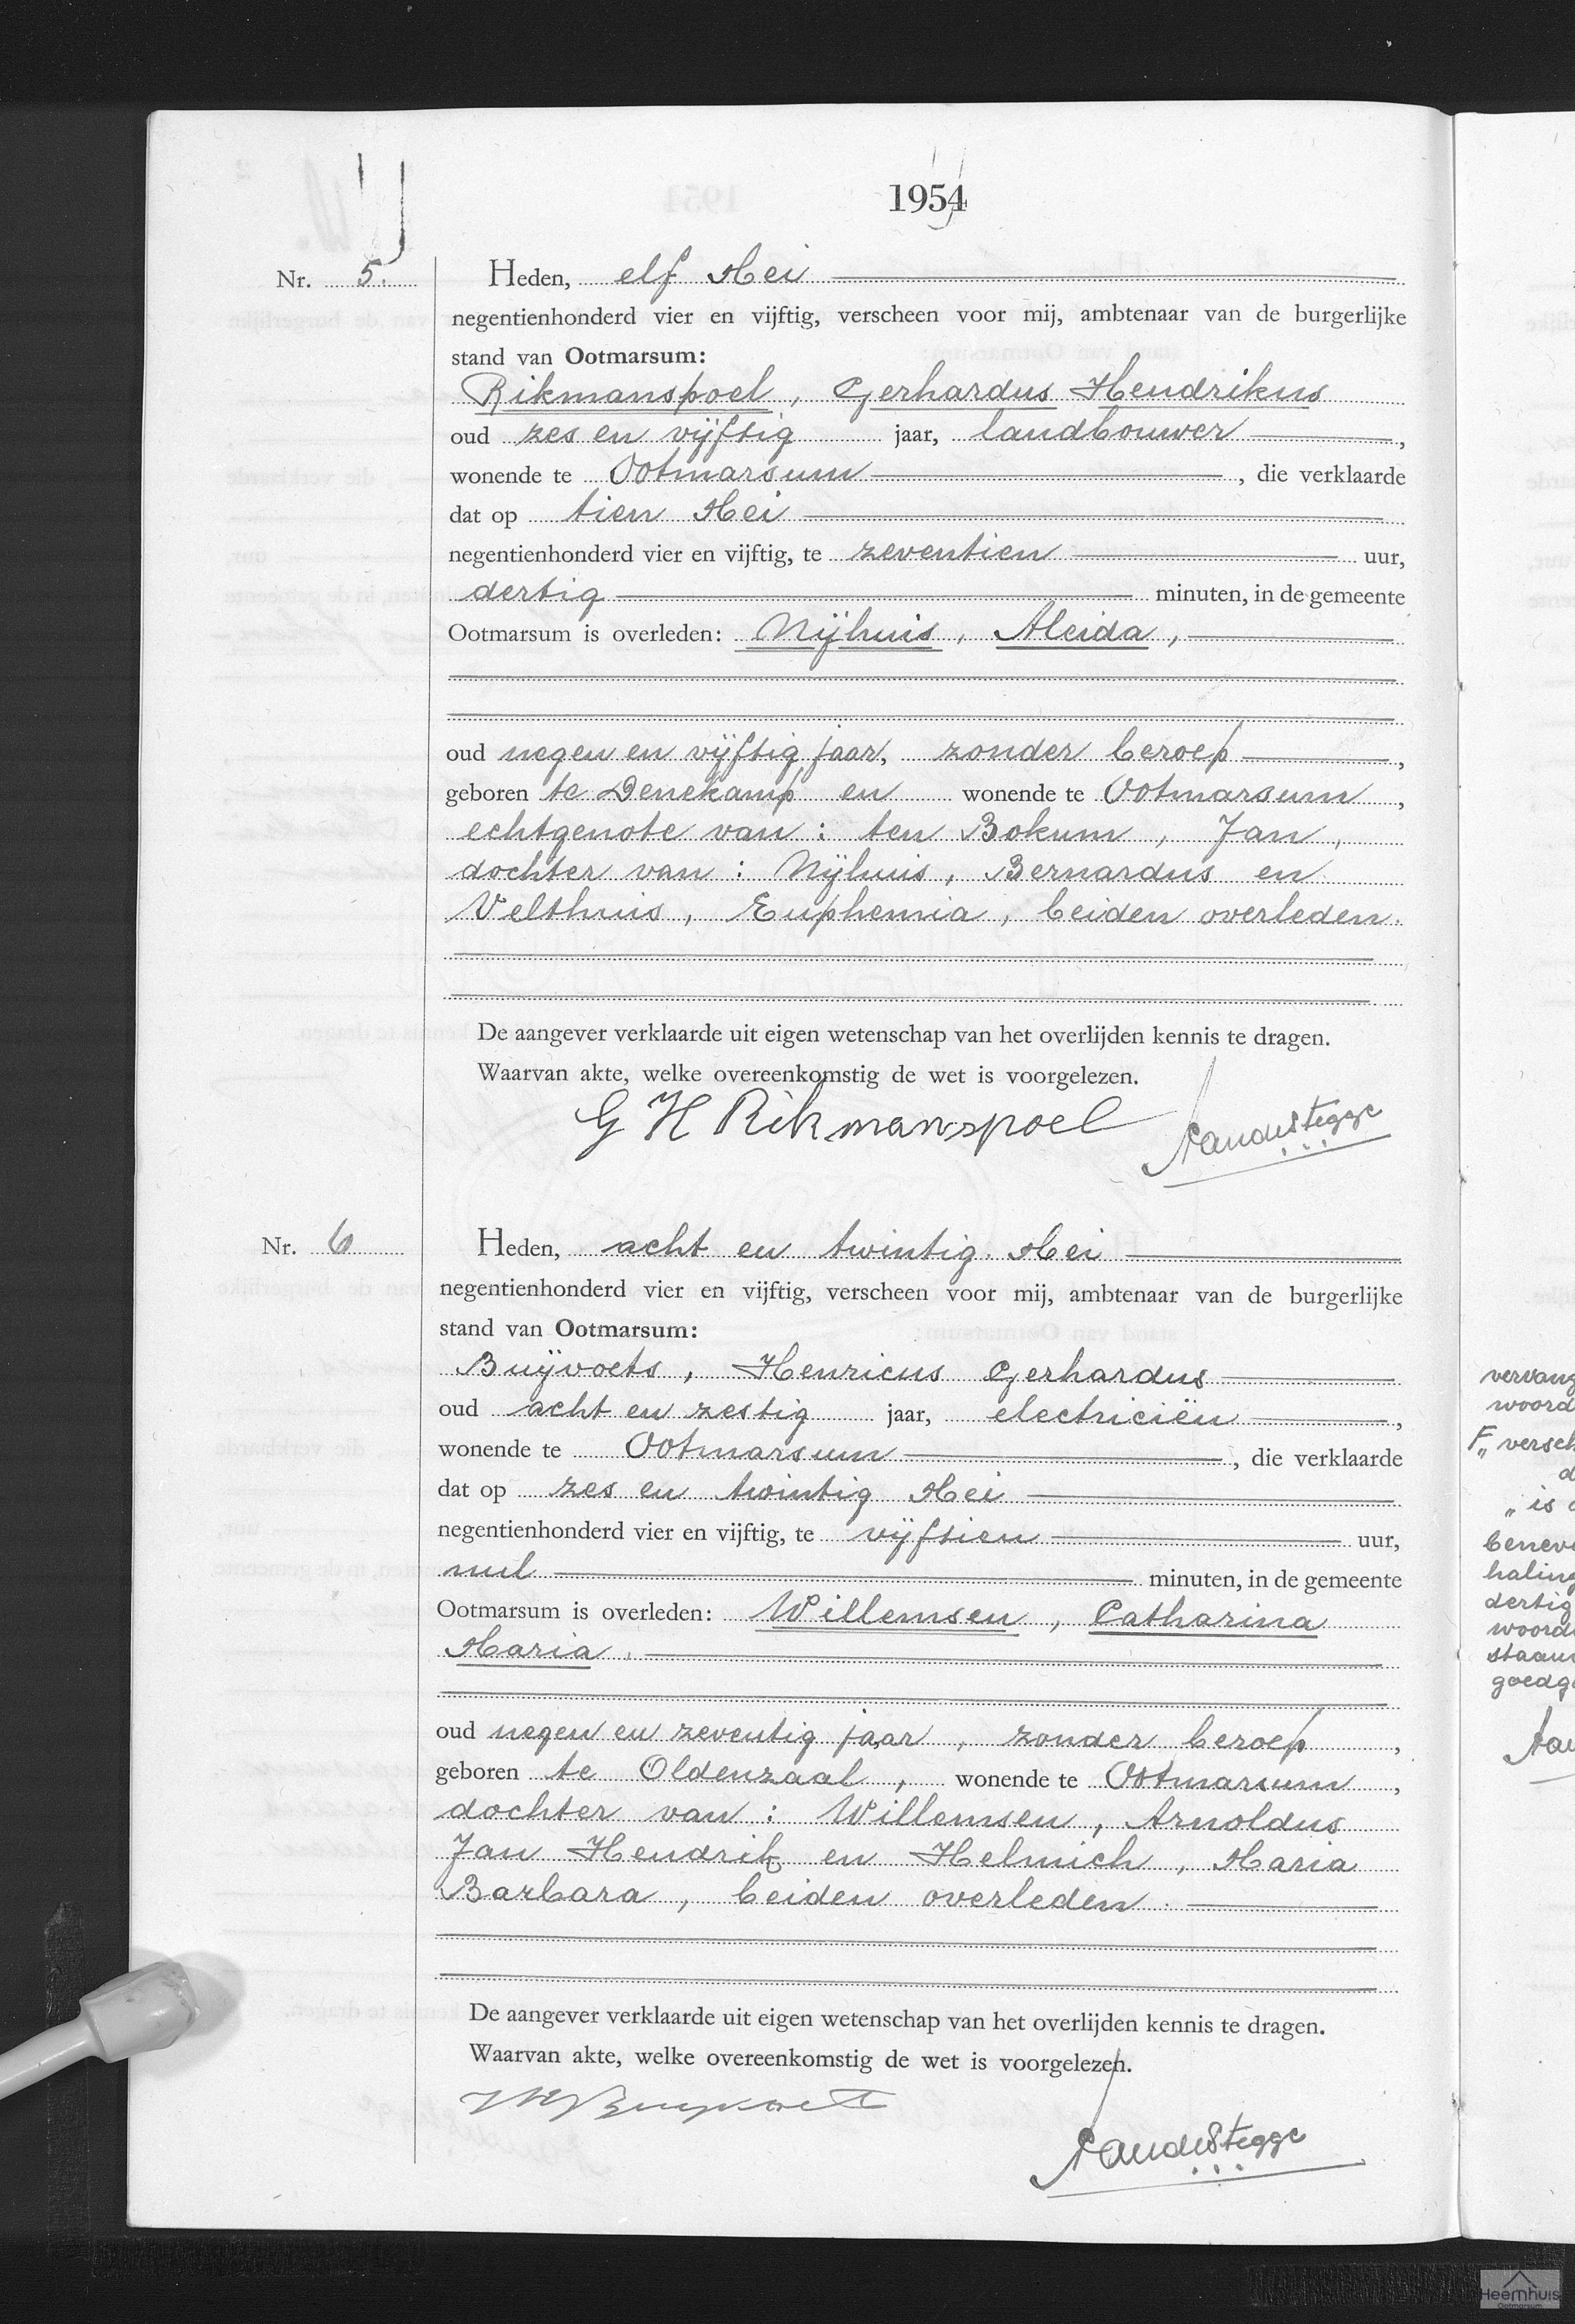 1954
Nr. 5.
Heden, elf Mei
negentienhonderd vier en vijftig, verscheen voor mij, ambtenaar van de burgerlijke
stand van Ootmarsum:
Rikmanspoel, Gerhardus Hendrikus
oud zes en vijftig jaar, landbouwer,
wonende te Ootmarsum, die verklaarde
dat op tien Mei
negentienhonderd vier en vijftig, te zeventien uur,
dertig minuten, in de gemeente
Ootmarsum is overleden: Nijhuis, Aleida,
oud negen en vijftig jaar, zonder beroep,
geboren te Denekamp en wonende te Ootmarsum,
echtgenote van: ten Bokum, Jan,
dochter van: Nijhuis, Bernardus en
Velthuis, Euphemia, beiden overleden.
De aangever verklaarde uit eigen wetenschap van het overlijden kennis te dragen.
Waarvan akte, welke overeenkomstig de wet is voorgelezen.
G H Rikmanspoel
Nr. 6
Heden, acht en twintig Mei
negentienhonderd vier en vijftig, verscheen voor mij, ambtenaar van de burgerlijke
stand van Ootmarsum:
Buijvoets, Henricus Gerhardus
oud acht en zestig jaar, electriciën,
wonende te Ootmarsum, die verklaarde
dat op zes en twintig Mei
negentienhonderd vier en vijftig, te vijftien uur,
nul minuten, in de gemeente
Ootmarsum is overleden: Willemsen, Catharina
Maria,
oud negen en zeventig jaar, zonder beroep,
geboren te Oldenzaal, wonende te Ootmarsum,
dochter van: Willemsen, Arnoldus
Jan Hendrik en Helmich, Maria
Barbara, beiden overleden.
De aangever verklaarde uit eigen wetenschap van het overlijden kennis te dragen.
Waarvan akte, welke overeenkomstig de wet is voorgelezen.
vervang
woord
F„ versch
d
„ is
beneve
haling
dertig
woord
staan
goedg
Heemhuis
Ootmarsum